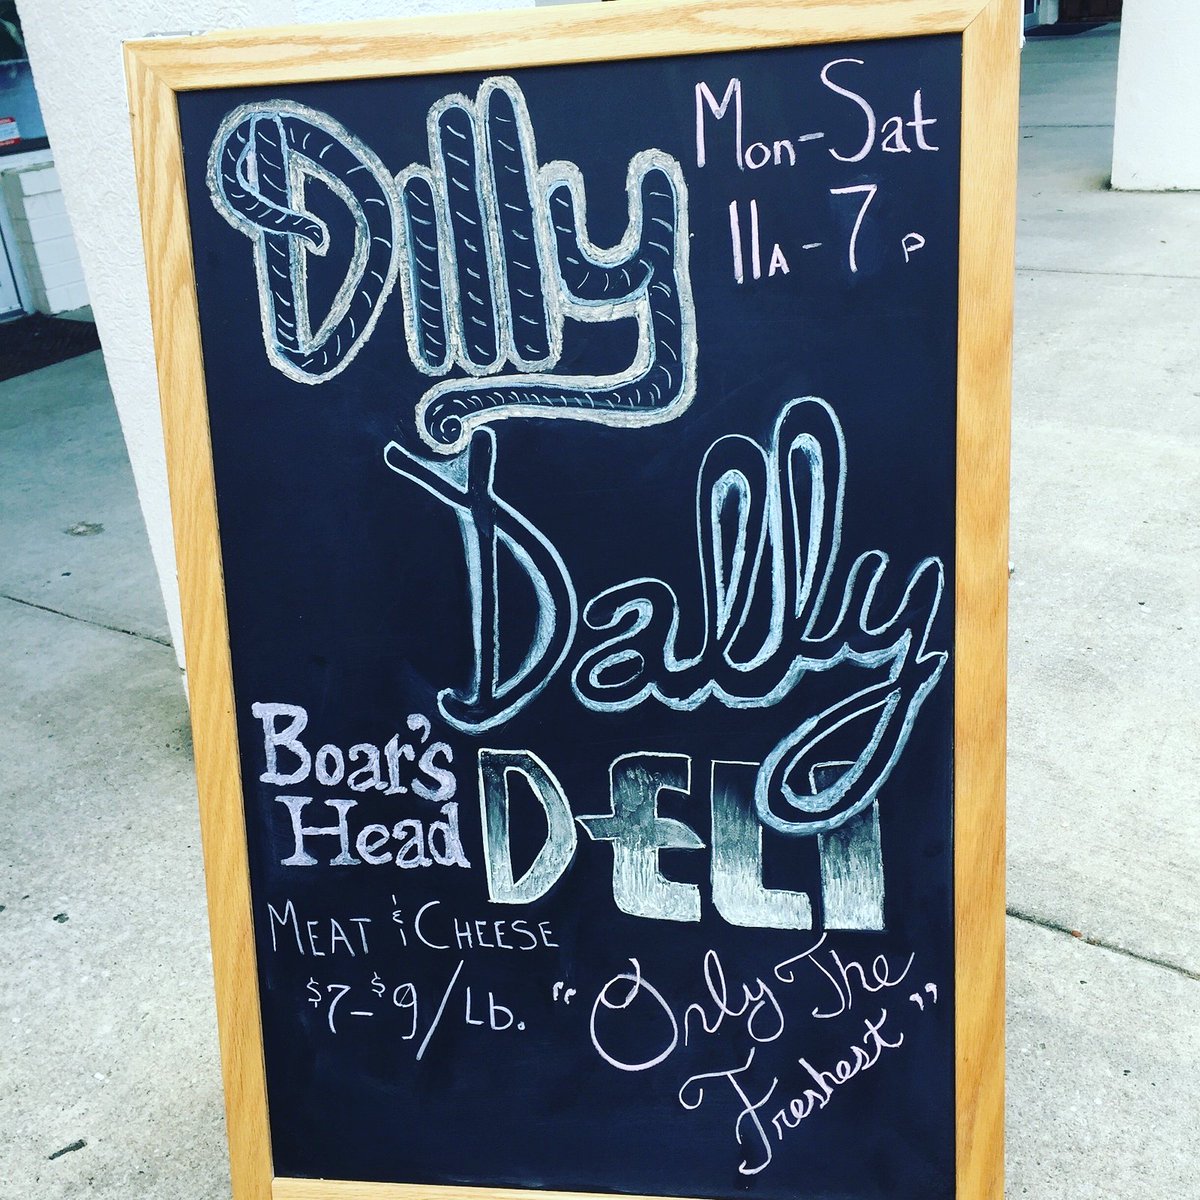 Dilly
Mon-Sat
11A-7P
Dally
DELI
Boar's
Head
MEAT & CHEESE
$7-$9/Lb.
"Only The
Freshest"